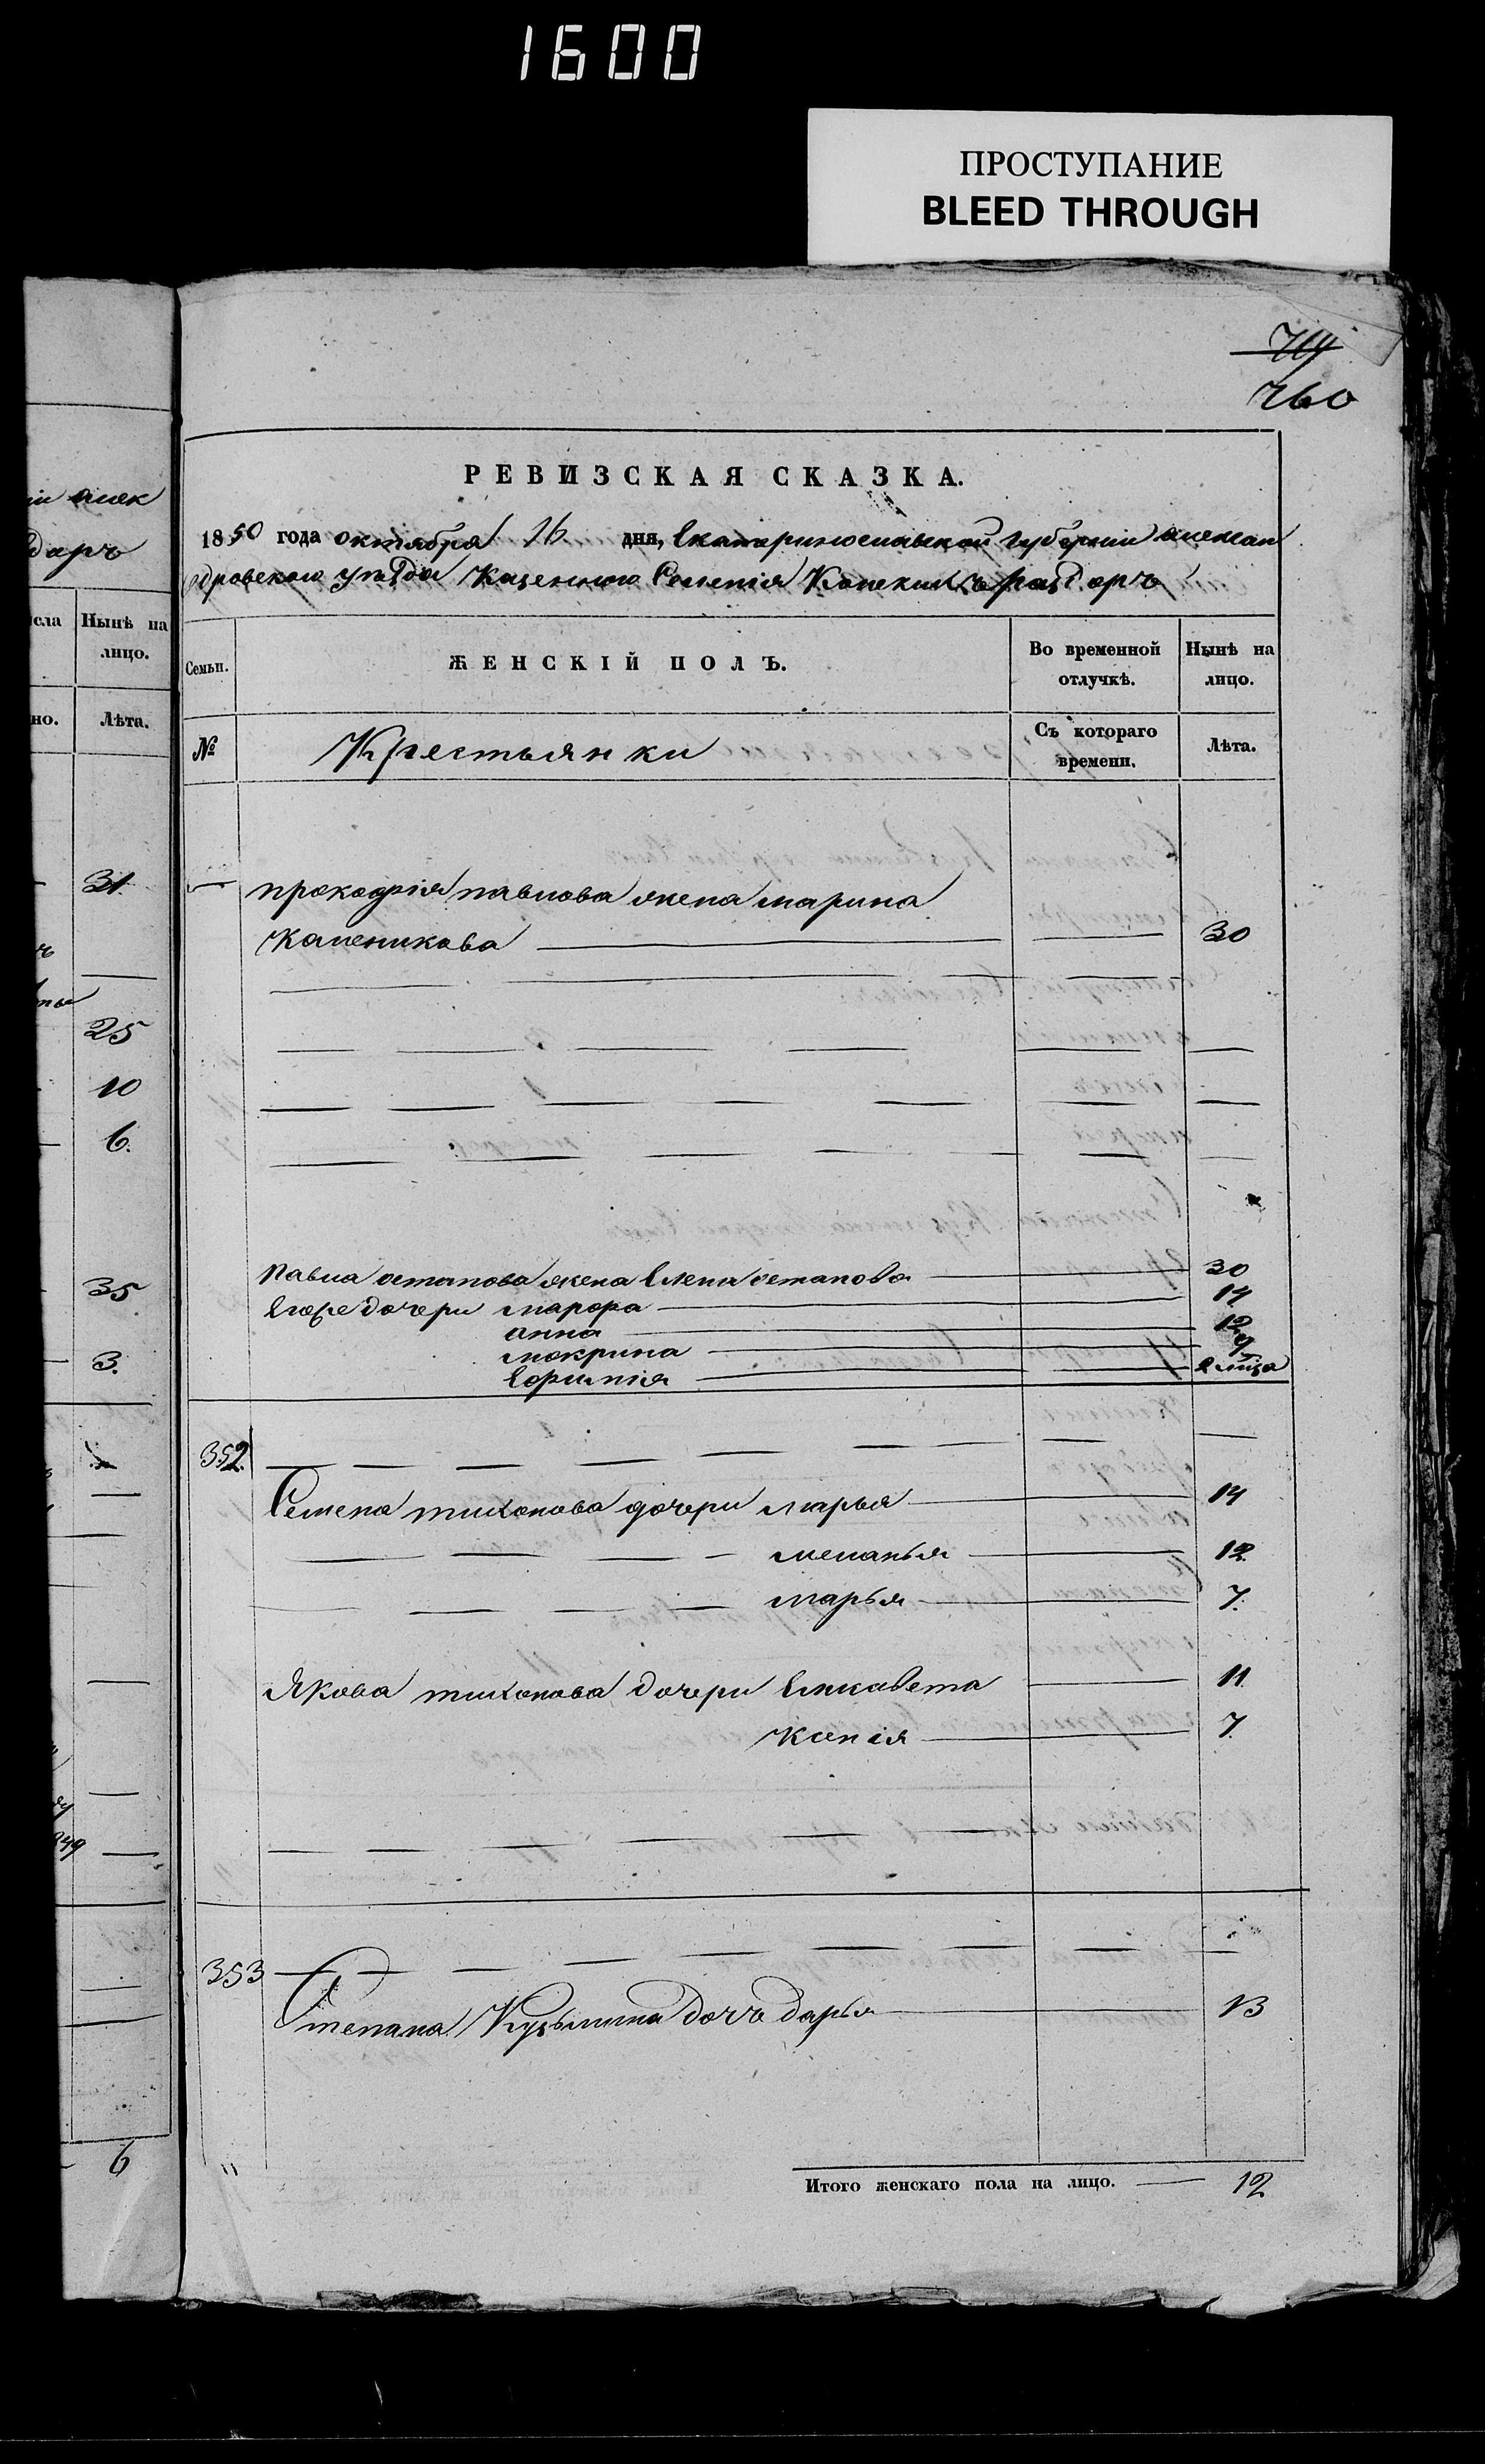 1600
ПРОСТУПАНИЕ
BLEED THROUGH
719
760
РЕВИЗСКАЯ СКАЗКА.
1850 года октября 16 дня, Екатеринославской губерніи алексан
дровскаго уезда Казеннаго Селенія Конскихъ Раздоръ
Семьи.
ЖЕНСКІЙ ПОЛЪ.
Во временной отлучкѣ.
Нынѣ на лицо.
№
Крестьянки
Съ котораго времени.
Лѣта.
прокофія павлова жена марина
Каленикова 30
Павла остапова жена Елена остапова 30
Егоже дочери марфа 14
анна 12
мокрина 9
Ефимія 2 мца
352.
Семена тихонова дочери марья 14
меланья 12
марья 7.
Якова тихонова дочери Елисавета 11
Ксенія 7.
353
Степана Кузьмина дочь дарья 13
Итого женскаго пола на лицо. 12
алек
даръ
сла
Нынѣ на лицо.
но.
Лѣта.
31.
25
10
6.
35
3.
6